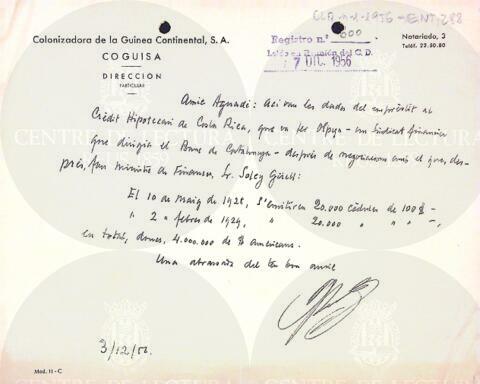 CLR-n-1-1956-ENT-288
Colonizadora de la Guinea Continental, S. A.
COGUISA
DIRECCION
PARTICULAR
Notariado, 3
Teléf. 22.50.80
Registro n.º 000
Leído en Reunión del C. D.
7 DIC. 1956
Amic Aguadé: Ací van les dades del emprèstit al
Crèdit Hipotecari de Costa Rica, que va fer - un Sindicat financier
que dirigia el Banc de Catalunya - després de negociacions amb el que, des-
prés, fou ministre de Finances, Sr. Soley Güell:
El 10 de maig de 1928, s'emitiren 20.000 cèdules de 100 $ -
" 2 " febrer de 1929, " 20.000 " " " -,
en total, doncs, 4.000.000 de $ americans.
Una abraçada del teu bon amic
3/12/56.
Mod. 11 - C
CENTRE DE LECTURA
1859